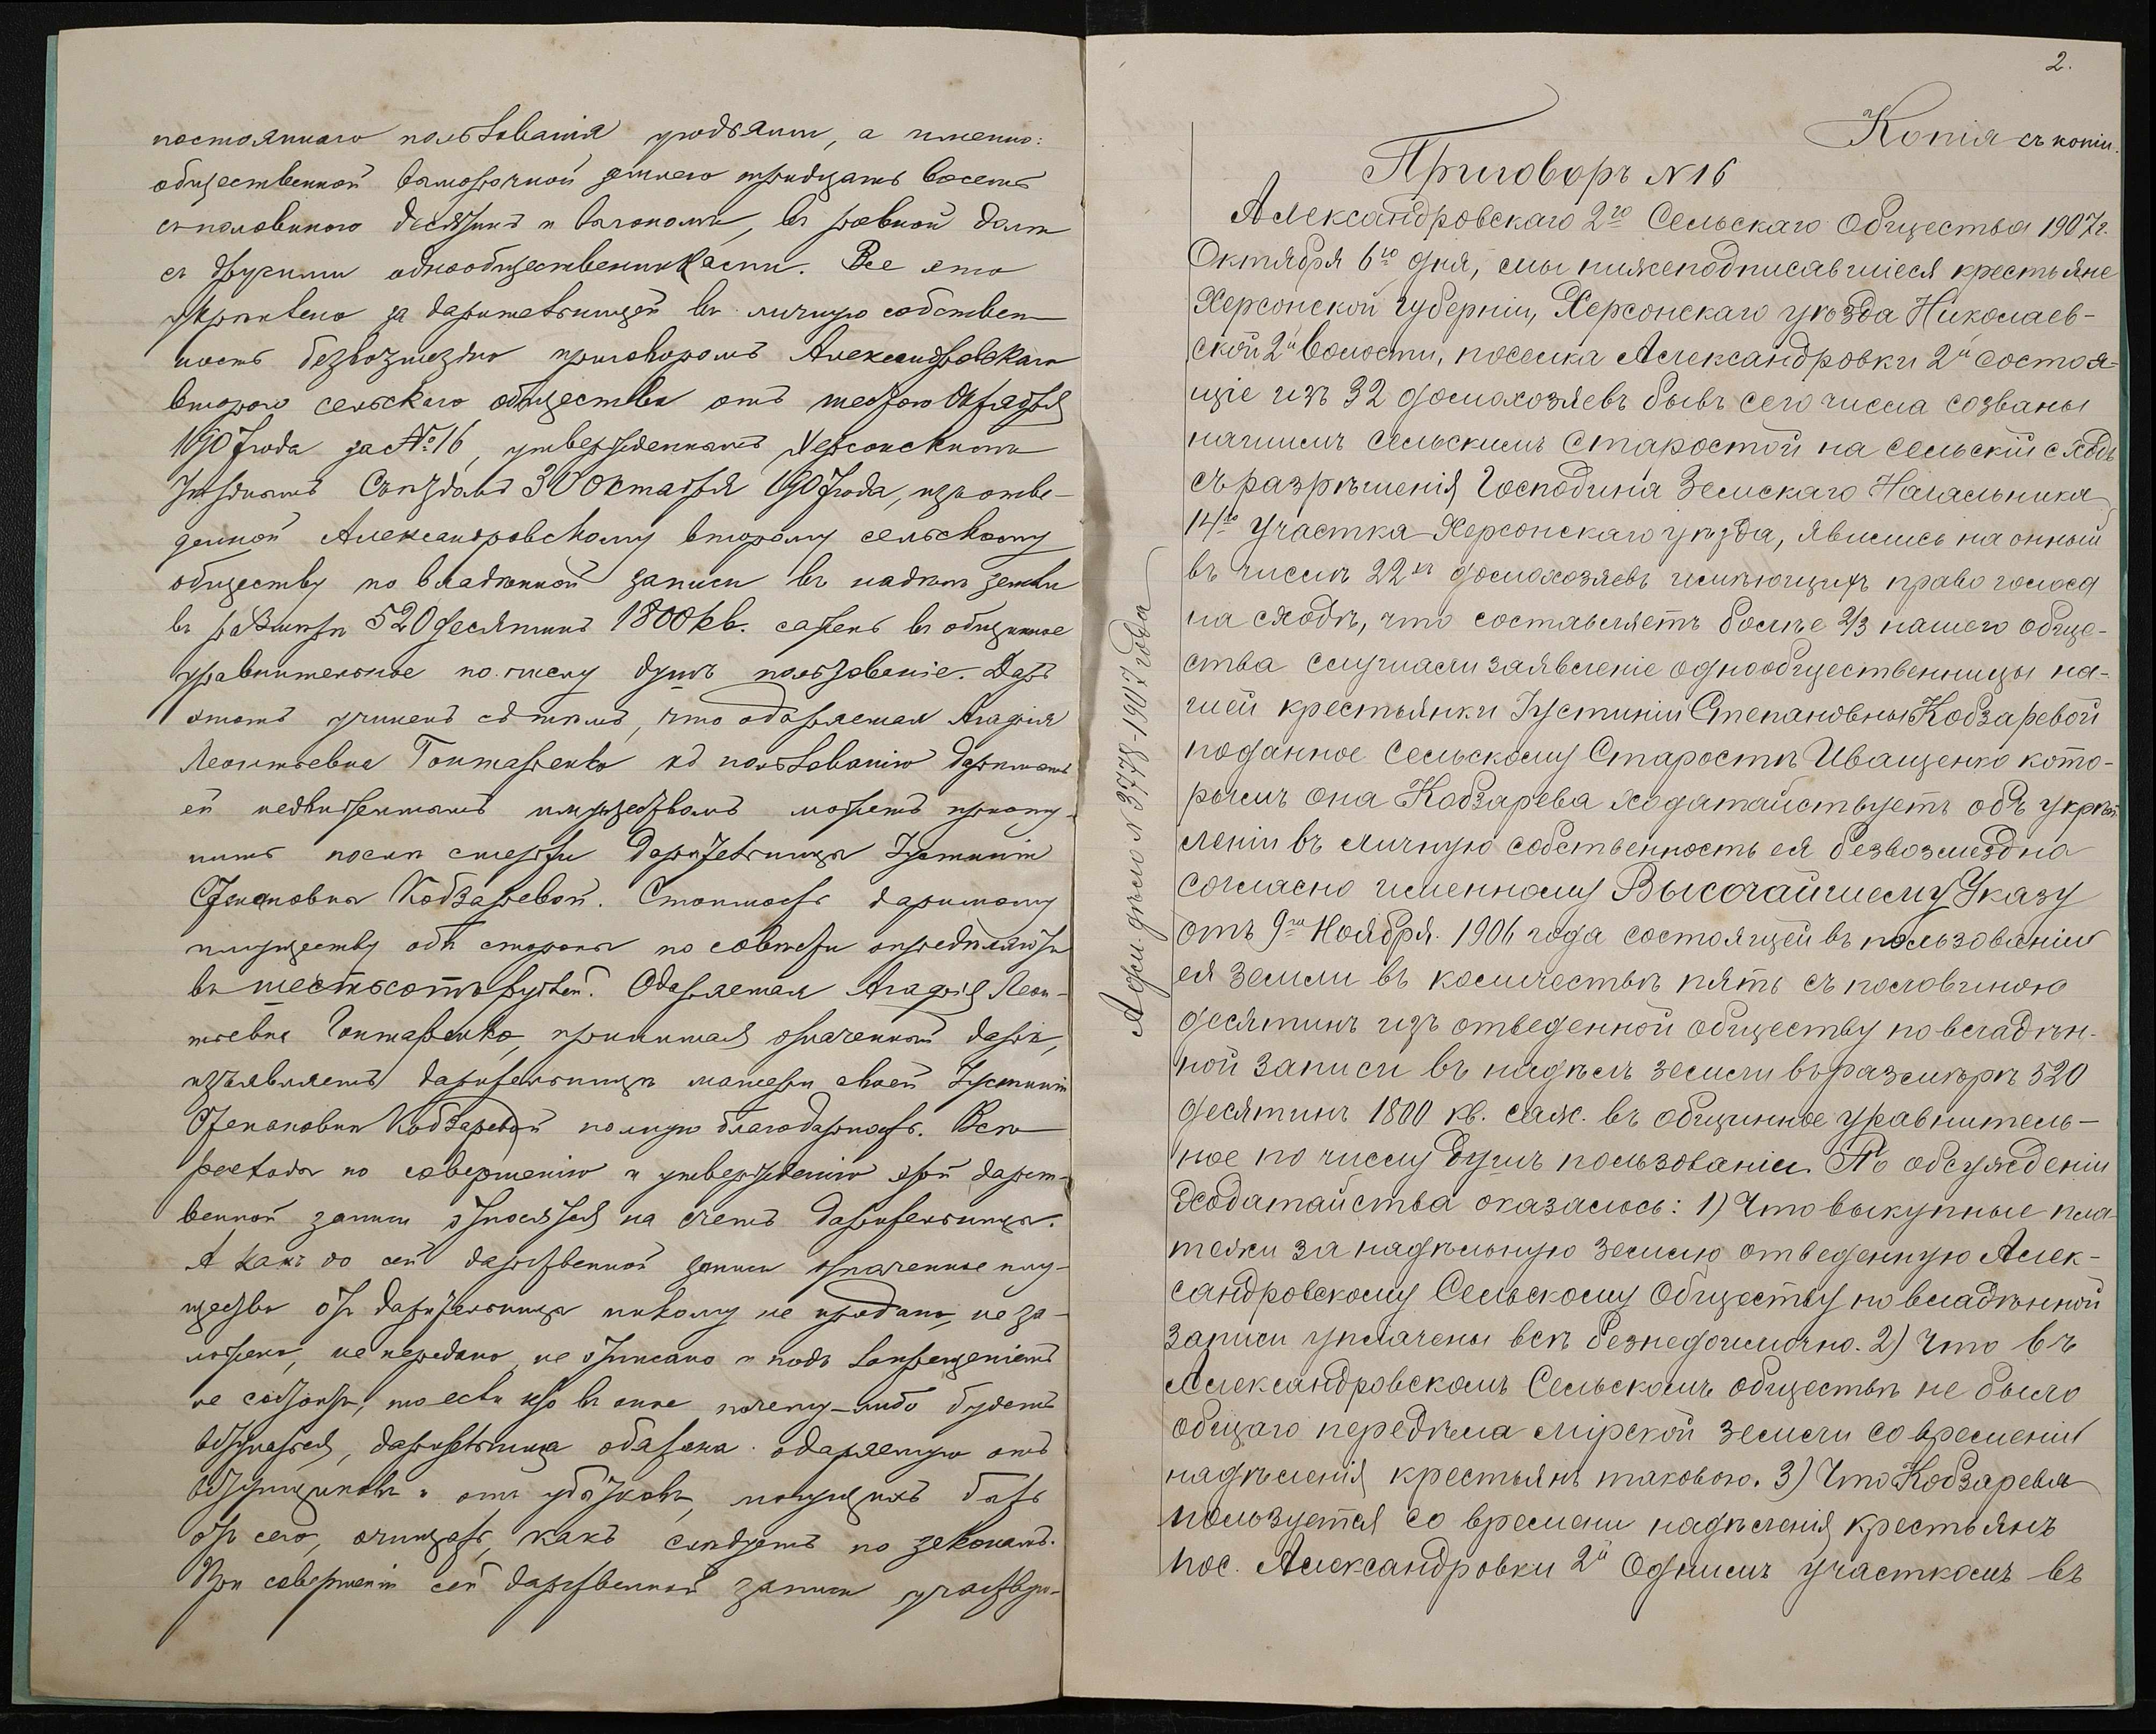 постояннаго пользованія угодьями, а именно:
общественной выморочной землею тридцать восемь
съ половиною десятинъ и выгономъ, въ равной доли
съ другими однообщественниками. Все это
укрѣплено за дарительницей въ личную собствен-
ность безвозмездно приговоромъ Александровскаго
второго сельскаго общества отъ шестого Октября
1907 года за № 16, утвержденнымъ Херсонскимъ
Уѣзднымъ Съѣздомъ 30 Октября 1907 года, изъ отве-
денной Александровскому второму сельскому
обществу по владѣнной записи въ надѣлъ земли
въ размѣрѣ 520 десятинъ 1800 кв. сажень въ общинное
уравнительное по числу душъ пользованіе. Даръ
этотъ учиненъ съ тѣмъ, что одаряемая Агафія
Леонтьевна Гонтаренко къ пользованію даримымъ
ей недвижимымъ имуществомъ можетъ присту-
пить послѣ смерти дарительницы Іустиніи
Степановны Кобзаревой. Стоимость даримому
имуществу обѣ стороны по совѣсти опредѣляютъ
въ шестьсотъ рублей. Одаряемая Агафія Леон-
тьевна Гонтаренко, принимая означенный даръ,
изъявляетъ дарительницѣ матери своей Іустиніи
Степановнѣ Кобзаревой полную благодарность. Всѣ
расходы по совершенію и утвержденію этой дарст-
венной записи относятся на счетъ дарительницы.
А какъ до сей дарственной записи означенное иму-
щество отъ дарительницы никому не продано, не за-
ложено, не передано, не описано и подъ запрещеніемъ
не состоитъ, то если кто въ оное почему-либо будетъ
вступаться, дарительница обязана одаряемую отъ
вступщиковъ и отъ убытковъ, могущихъ быть
отъ сего, очищать, какъ слѣдуетъ по законамъ.
При совершеніи сей дарственной записи участво-
2.
Копія съ копіи.
Приговоръ № 16
Александровскаго 2го Сельскаго Общества 1907 г.
Октября 6го дня, мы нижеподписавшіеся крестьяне
Херсонской губерніи, Херсонскаго уѣзда Николаев-
ской 2й волости, поселка Александровки 2й состоя-
щіе изъ 32 домохозяевъ бывъ сего числа созваны
нашимъ Сельскимъ Старостой на сельскій сходъ
съ разрѣшенія Господина Земскаго Начальника
14го участка Херсонскаго уѣзда, явились на онный
въ числѣ 22хъ домохозяевъ имѣющихъ право голоса
на сходѣ, что составляетъ болѣе 2/3 нашего обще-
ства слушали заявленіе однообщественницы на-
шей крестьянки Іустиніи Степановны Кобзаревой
поданное Сельскому Старостѣ Иващенко кото-
рымъ она Кобзарева ходатайствуетъ объ укрѣп-
леніи въ личную собственность ея безвозмездно
согласно именному Высочайшему Указу
отъ 9го Ноября 1906 года состоящей въ пользованіи
ея земли въ количествѣ пять съ половиною
десятинъ изъ отведенной обществу по владѣн-
ной записи въ надѣлъ земли въ размѣрѣ 520
десятинъ 1800 кв. саж. въ общинное уравнитель-
ное по числу душъ пользованіи. По обсужденіи
Ходатайства оказалось: 1) Что выкупные пла-
тежи за надѣльную землю отведенную Алек-
сандровскому Сельскому Обществу по владѣнной
записи уплачены всѣ безнедоимочно. 2) Что въ
Александровскомъ Сельскомъ обществѣ не было
общаго передѣла мірской земли со времени
надѣленія крестьянъ таковою. 3) Что Кобзарева
пользуется со времени надѣленія крестьянъ
пос. Александровки 2й Однимъ участкомъ въ
А при дѣлѣ № 3778-1907 года